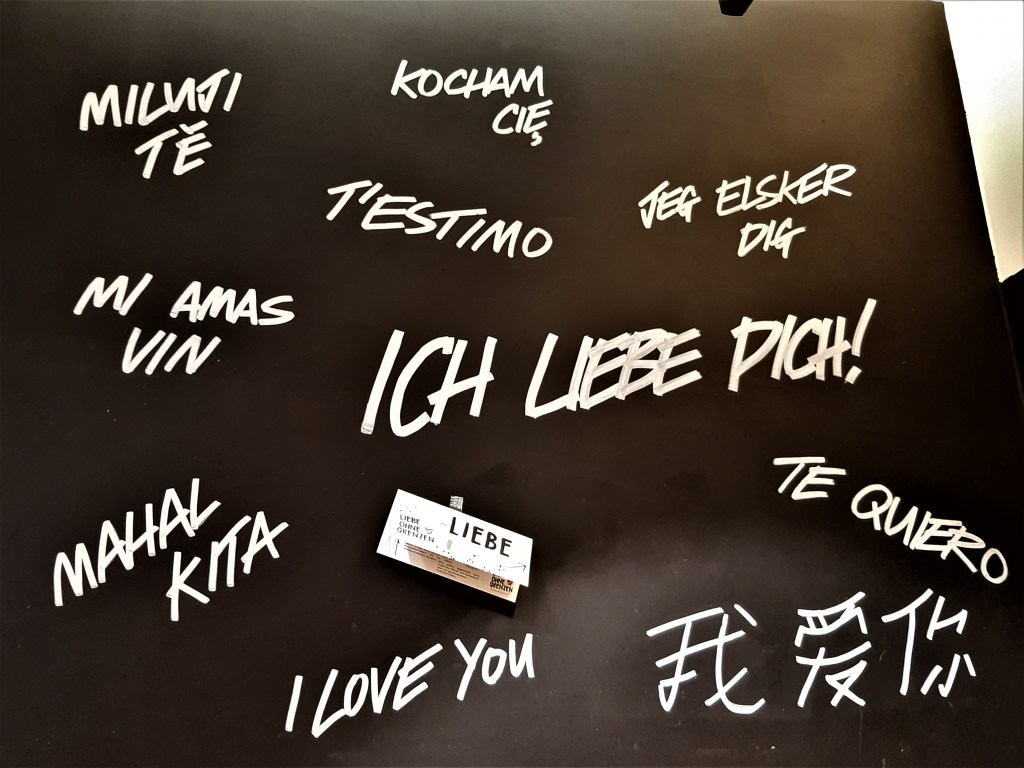 MILUJI
TĚ
KOCHAM
CIĘ
T'ESTIMO
JEG ELSKER
DIG
MI AMAS
VIN
ICH LIEBE DICH!
TE QUIERO
MAHAL
KITA
LIEBE
OHNE
GRENZEN
LIEBE
OHNE
GRENZEN
I LOVE YOU
我爱你